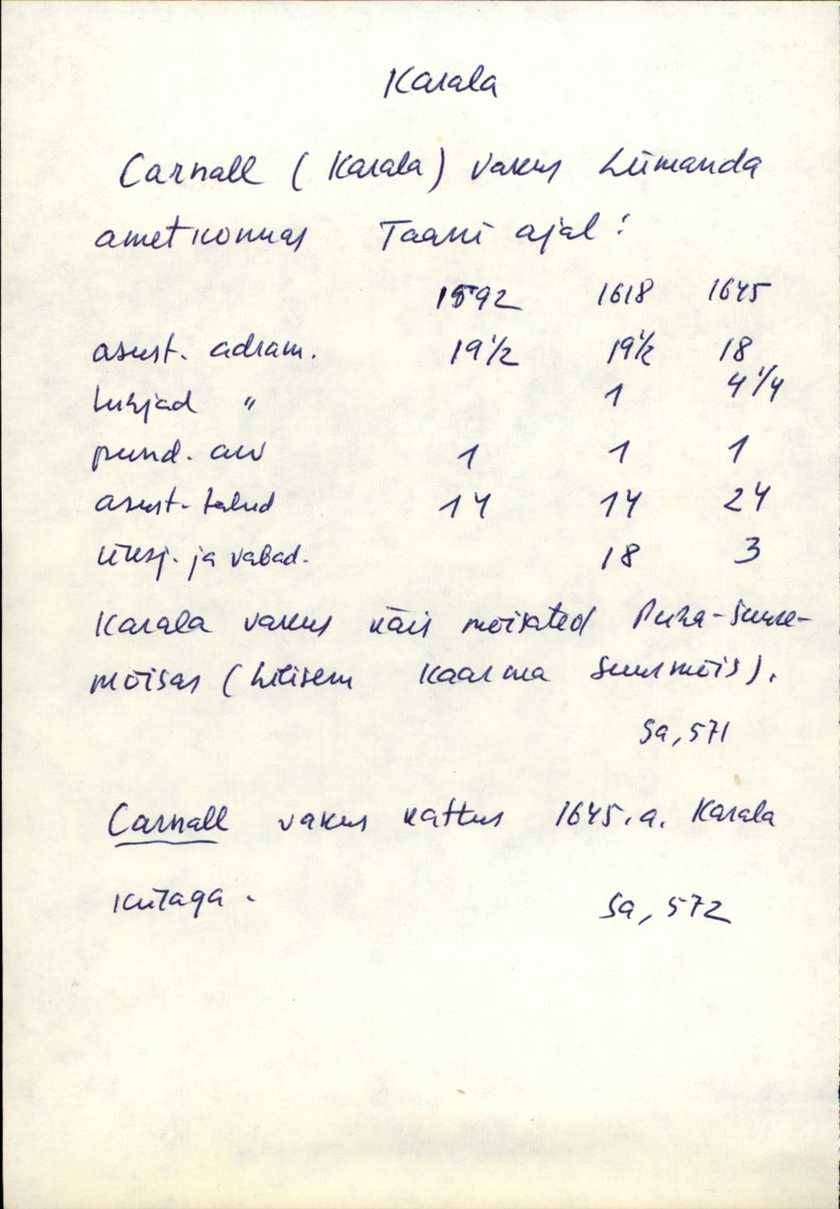 Karala
Carnall (Karala) vakus Lümanda
ametkonnas Taani ajal:
1592 1618 1645
asust. adram. 19 1/2 19 1/2 18
tühjad " 1 4 1/4
pund. arv 1 1 1
asust. talud 14 14 24
üksj. ja vabad. 18 3
Karala vakus käis mõisateol Püha-Suure-
mõisas (hilisem Kaarma Suurmõis).
Sa, 571
Carnall vakus kattus 1645.a. Karala
külaga.
Sa, 572